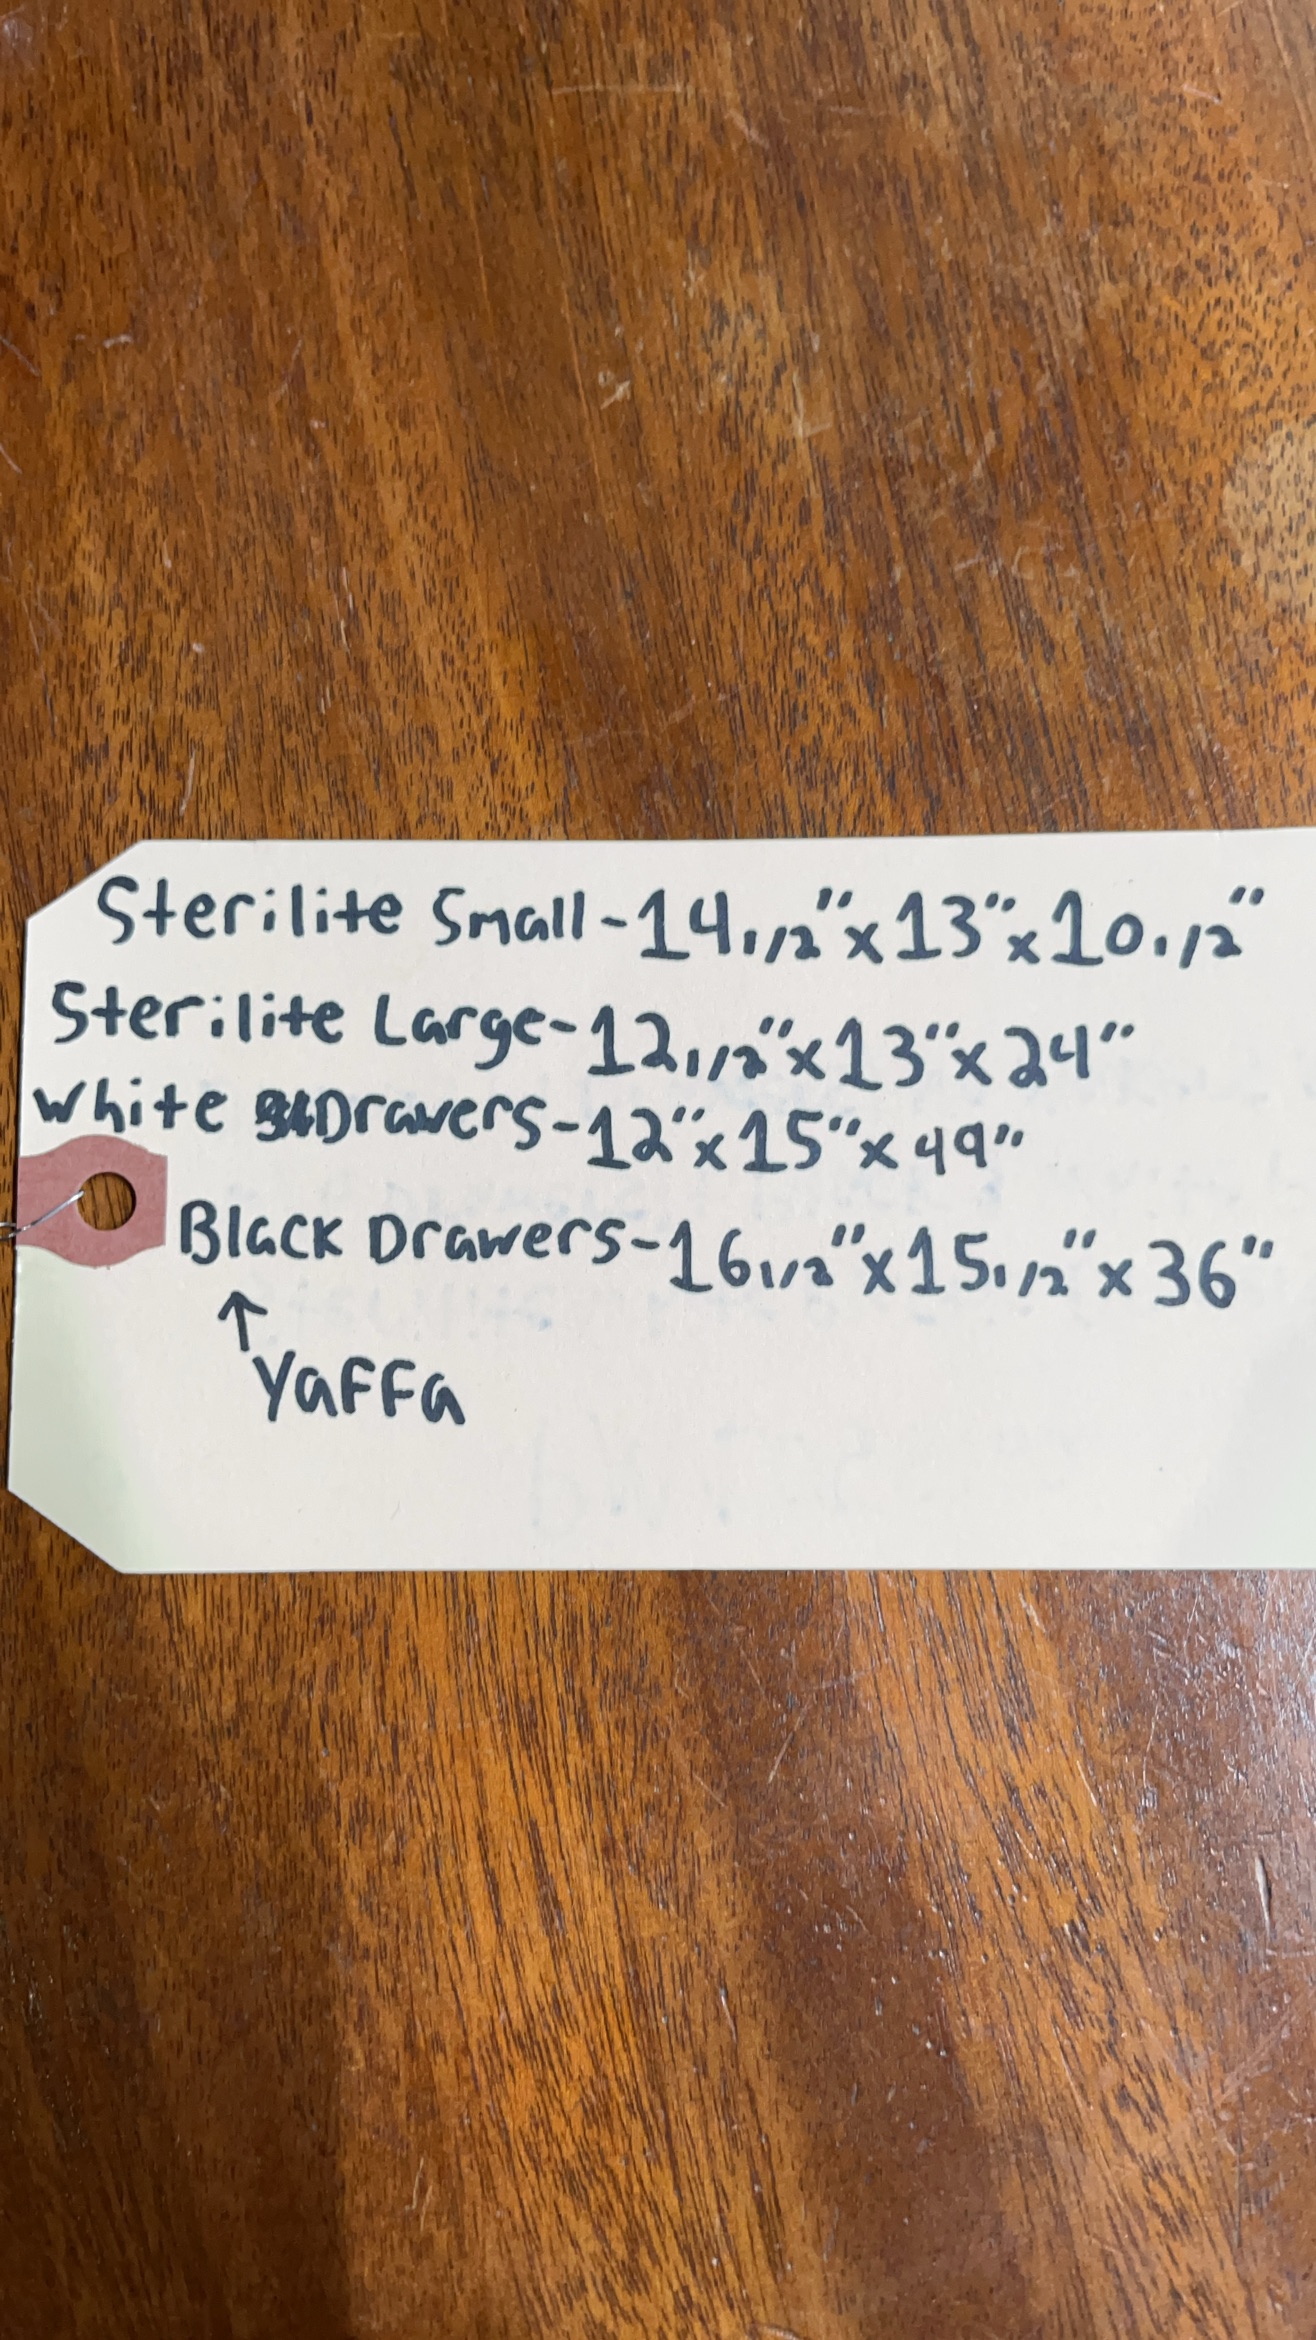 Sterilite Small-14 1/2"x13"x10 1/2"
Sterilite Large-12 1/2"x13"x24"
White Drawers-12"x15"x49"
Black Drawers-16 1/2"x15 1/2"x36"
↑
Yaffa